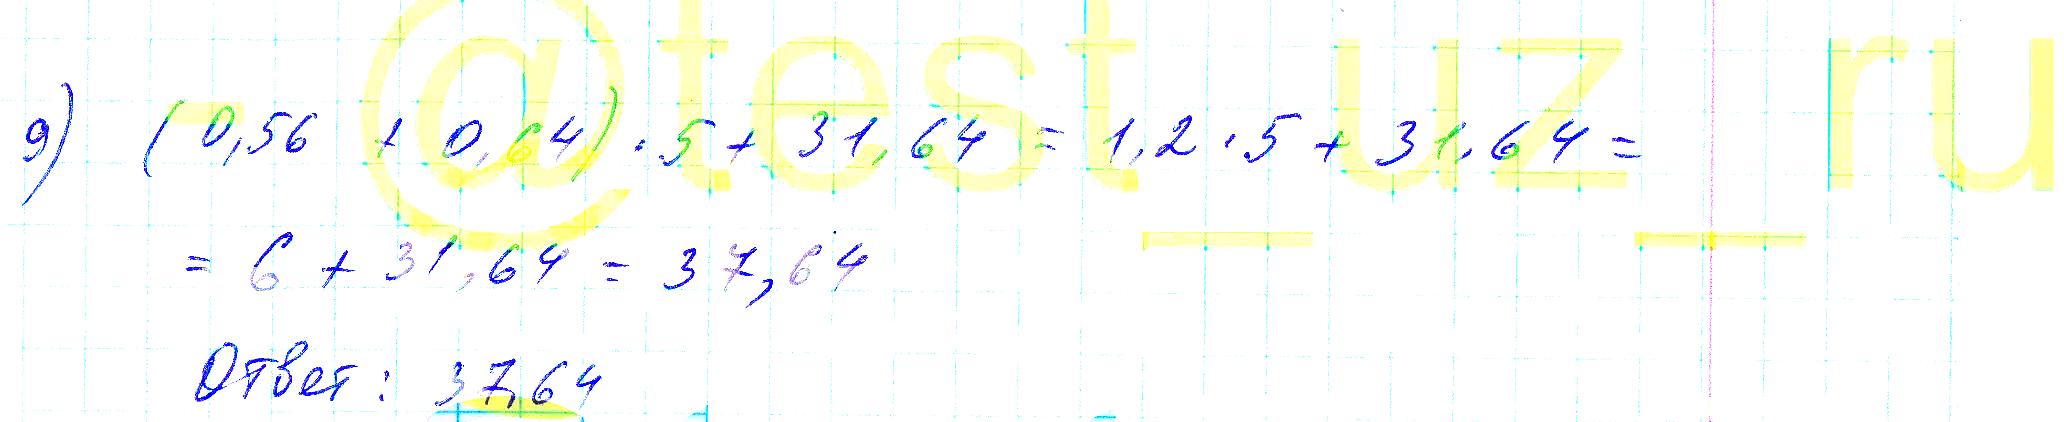 @test_uz_ru
9) (0,56 + 0,64) · 5 + 31,64 = 1,2 · 5 + 31,64 =
= 6 + 31,64 = 37,64
Ответ: 37,64